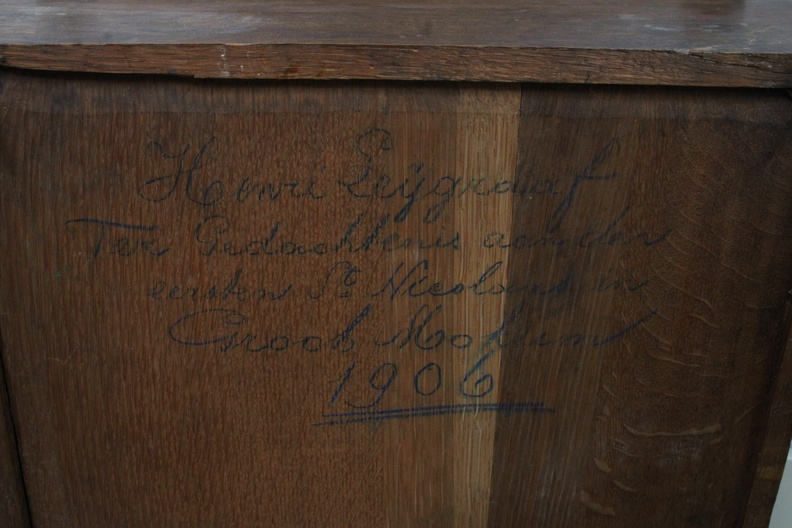 Henri Leijgraaf
Ter Gedachtenis aan den
eersten St Nicolaas in
Groot Mokum
1906